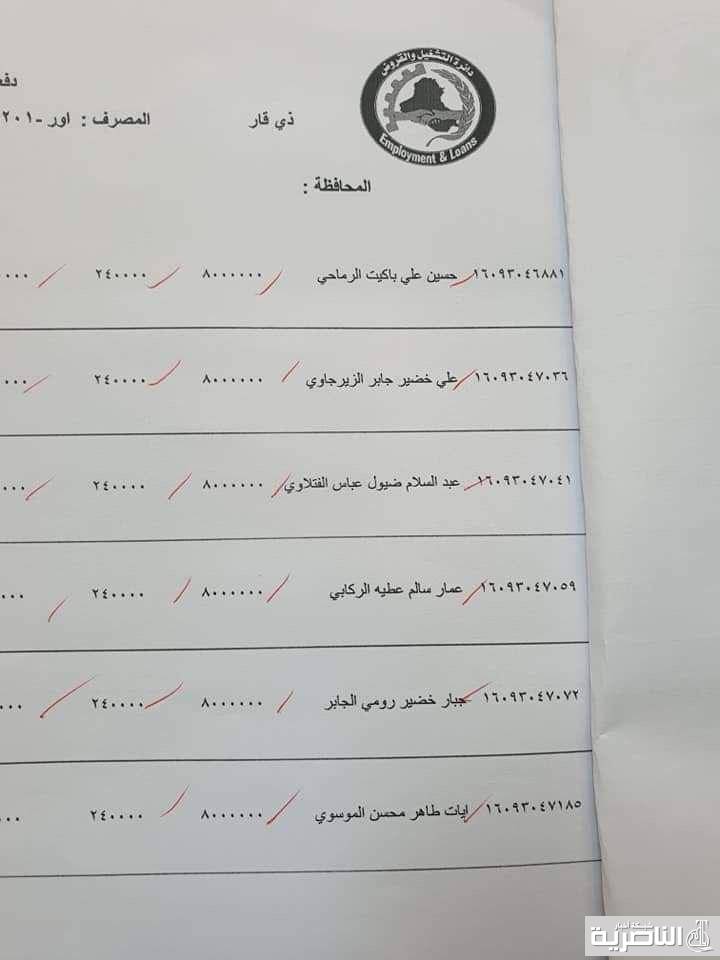 دائرة التشغيل والقروض
Employment & Loans
ذي قار
المصرف : اور -٢٠١
المحافظة :
١٦٠٩٣٠٤٦٨٨١ حسين علي باكيت الرماحي ٨٠٠٠٠٠٠ ٢٤٠٠٠٠
١٦٠٩٣٠٤٧٠٣٦ علي خضير جابر الزيرجاوي ٨٠٠٠٠٠٠ ٢٤٠٠٠٠
١٦٠٩٣٠٤٧٠٤١ عبد السلام ضيول عباس الفتلاوي ٨٠٠٠٠٠٠ ٢٤٠٠٠٠
١٦٠٩٣٠٤٧٠٥٩ عمار سالم عطيه الركابي ٨٠٠٠٠٠٠ ٢٤٠٠٠٠
١٦٠٩٣٠٤٧٠٧٢ جبار خضير رومي الجابر ٨٠٠٠٠٠٠ ٢٤٠٠٠٠
١٦٠٩٣٠٤٧١٨٥ ايات طاهر محسن الموسوي ٨٠٠٠٠٠٠ ٢٤٠٠٠٠
شبكة اخبار
الناصرية